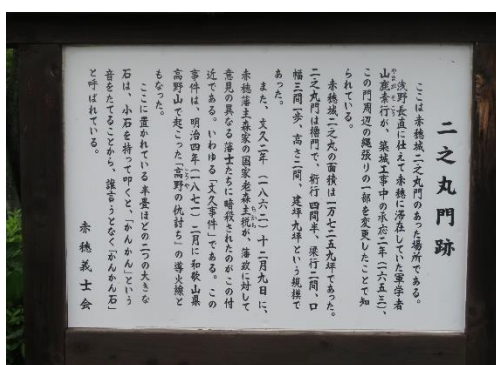 二之丸門跡
ここは赤穂城二之丸門のあった場所である。
浅野長直に仕えて赤穂に滞在していた軍学者
山鹿素行が、築城工事中の承応二年(一六五三)、
この門周辺の縄張りの一部を変更したことで知
られている。
赤穂城二之丸の面積は一万七二五九坪であった。
二之丸門は櫓門で、桁行四間半、梁行二間、口
幅三間一歩、高さ二間、建坪九坪という規模で
あった。
また、文久二年(一八六二)十二月九日に、
赤穂藩主森家の国家老森主税が、藩政に対して
意見の異なる藩士たちに暗殺されたのがこの付
近である。いわゆる「文久事件」である。この
事件は、明治四年(一八七一)二月に和歌山県
高野山で起こった「高野の仇討ち」の導火線と
もなった。
ここに置かれている半畳ほどの二つの大きな
石は、小石を持って叩くと、「かんかん」という
音をたてることから、誰言うとなく「かんかん石」
と呼ばれている。
赤穂義士会